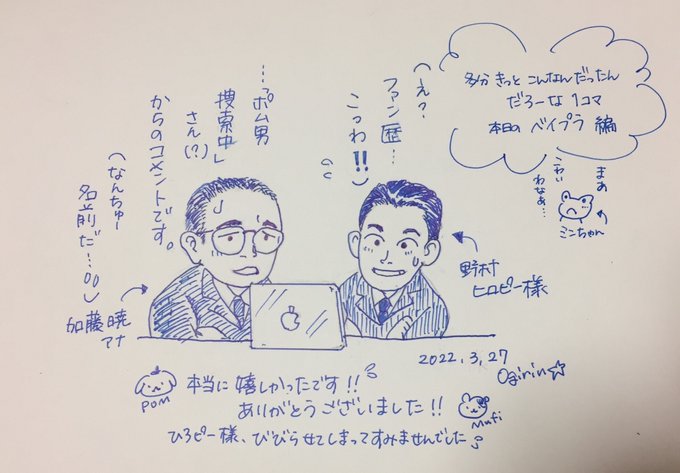 多分 きっと こんなんだったん
だろーな 1コマ
本日の ベイプラ 編
まあ
こわい
わなぁ…
ミンちゃん
(え?
ファン歴…
こっわ!!)
…「ポム男
捜索中」
さん(?)
からのコメントです。
(なんちゅー
名前だ…。。)
加藤暁
アナ
野村
ヒロピー様
2022.3.27
Ogirin☆
POM
本当に嬉しかったです!!
ありがとうございました!!
Mufi
ひろピー様、びびらせてしまってすみませんでした